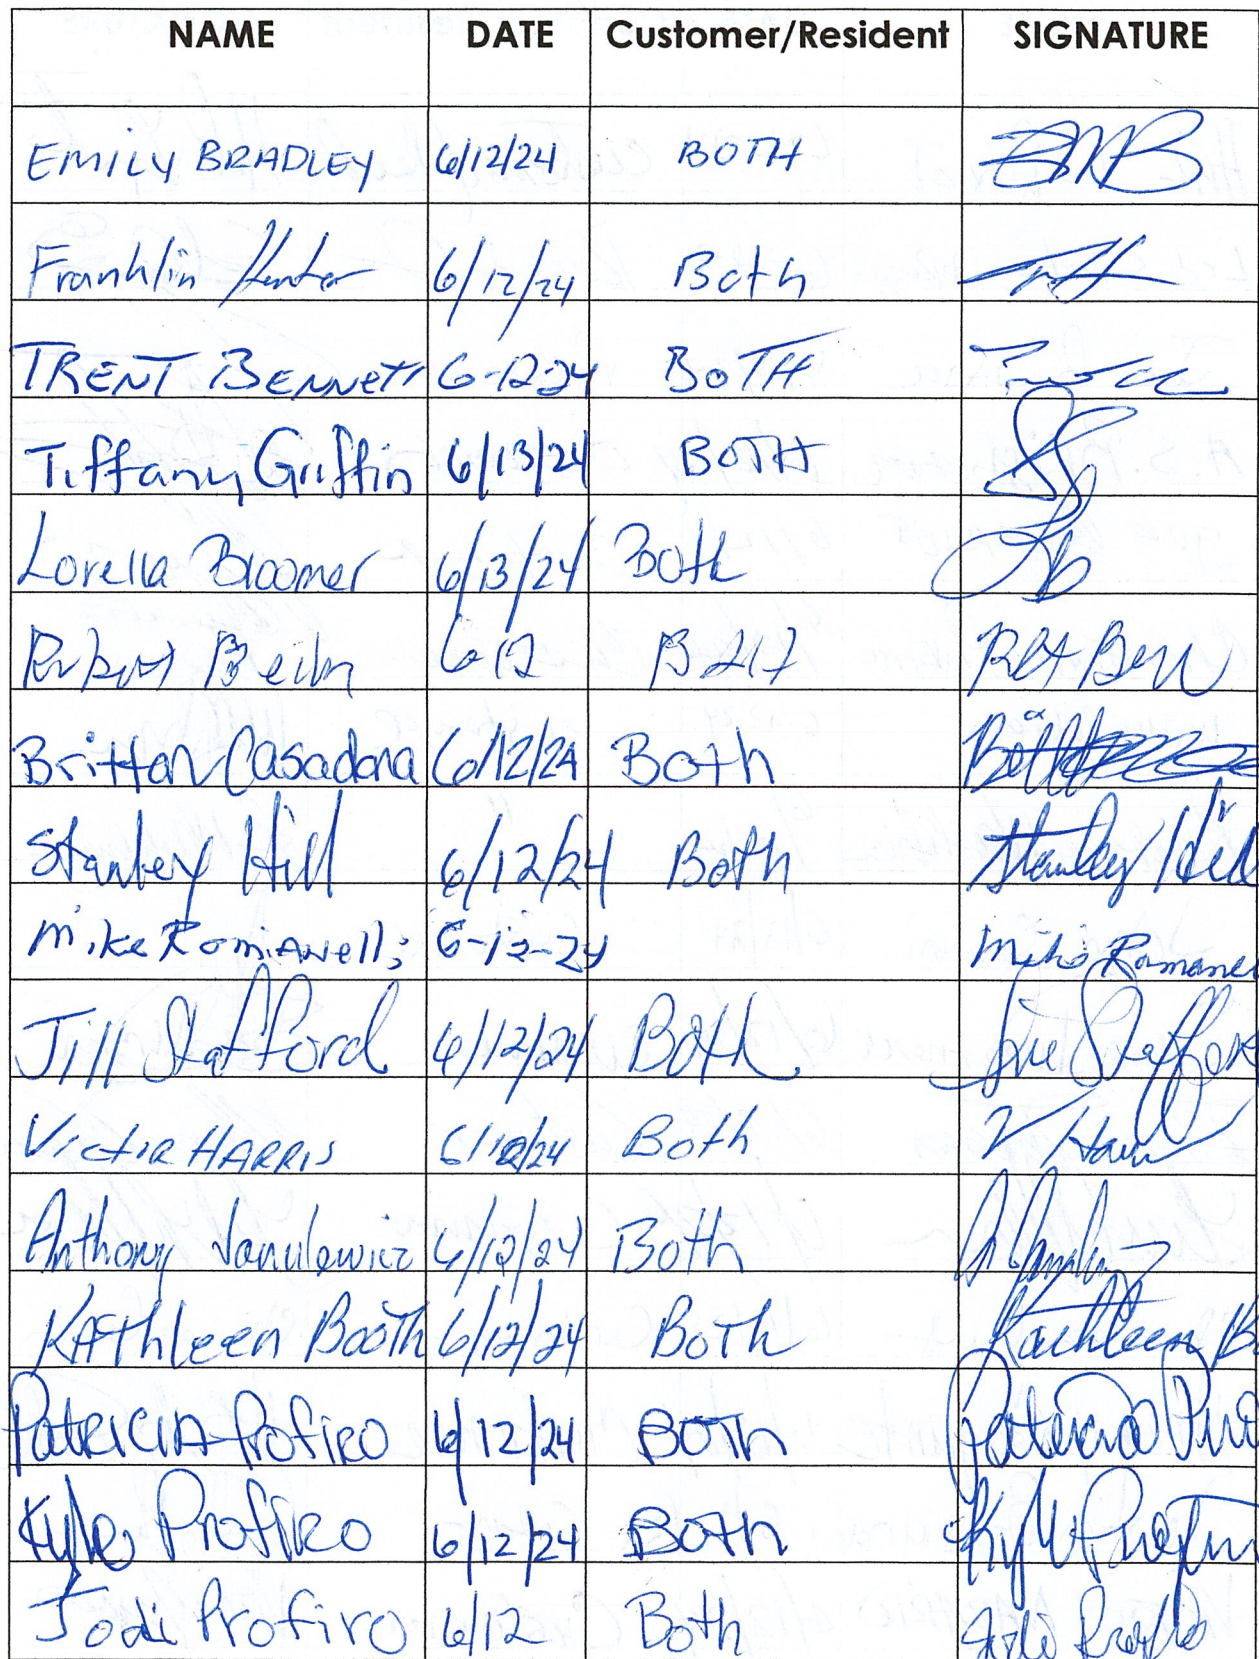 NAME DATE Customer/Resident SIGNATURE
EMILY BRADLEY 6/12/24 BOTH EMB
Franklin Hunter 6/12/24 Both
TRENT BENNETT 6-12-24 BOTH
Tiffany Griffin 6/13/24 BOTH
Lorella Bloomer 6/13/24 Both LB
6 12
Brittan Casadona 6/12/24 Both
Stanley Hill 6/12/24 Both Stanley Hill
Mike Romianelli 6-12-24 Mike Romanel
Jill Stafford 6/12/24 Both
Victir HARRIS 6/12/24 Both V Harr
Anthony Janulewicz 6/12/24 Both
KAthleen Booth 6/12/24 BoTh Kathleen B
PatRICIA Profiro 6/12/24 BOTh Patricia
Kyle Profiro 6/12/24 BOTh Kyle
Jodi Profiro 6/12 Both Jodi